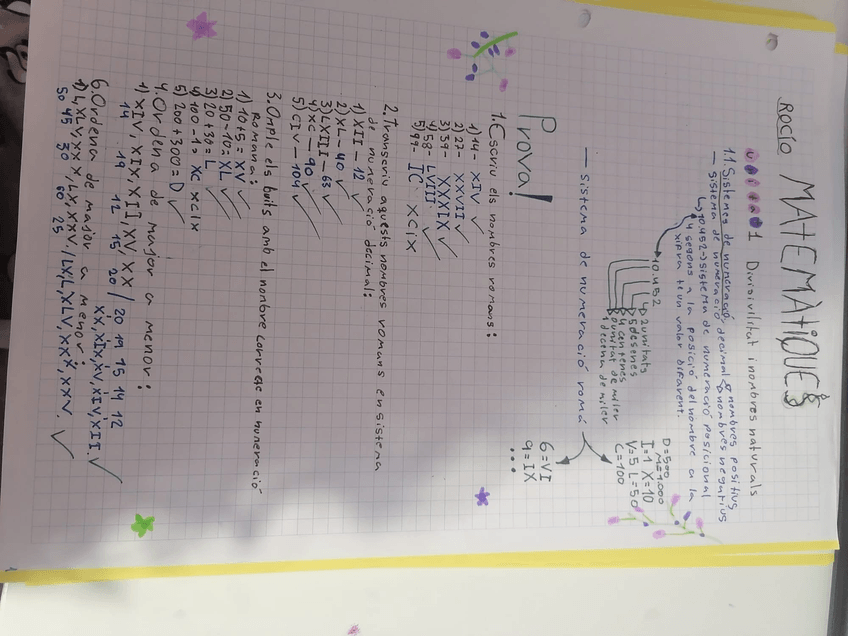 Rocío MATEMÀTIQUES
UNITAT 1 Divisivilitat i nombres naturals
1.1. Sistemes de numeració
— sistema de numeració decimal nombres positius
nombres negatius
10.452 → sistema de numeració posicional
4 segons a la posició del nombre a la
xifra te un valor diferent.
10.452
2 unitats
5 desenes
4 centenes
0 unitat de miler
1 decena de miler
D=500
M=1.000
I=1 X=10
V=5 L=50
C=100
— sistema de numeració romá
6=VI
9=IX
...
Prova!
1. Escriu els nombres romans:
1) 14- XIV ✓
2) 27- XXVII ✓
3) 39- XXXIX ✓
4) 58- LVIII ✓
5) 99- IC XCIX
2. Transcriu aquests nombres romans en sistema
de numeració decimal:
1) XII - 12 ✓
2) XL - 40 ✓
3) LXIII - 63 ✓
4) XC - 90 ✓
5) CIV - 104 ✓
3. Omple els buits amb el nombre correcte en numeració
Romana:
1) 10+5= XV ✓
2) 50-10= XL ✓
3) 20+30= L ✓
4) 100-1= XC XCIX
5) 200+300= D ✓
4. Ordena de major a menor:
1) XIV, XIX, XII, XV, XX / 20 19 15 14 12
14 19 12 15 20 XX, XIX, XV, XIV, XII. ✓
6. Ordena de major a menor:
1) LXLV, XXX, LX, XXV. / LX, L, XLV, XXX, XXV. ✓
50 45 30 60 25